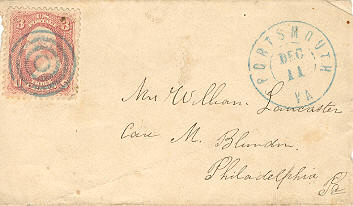 3 3
PORTSMOUTH
DEC
11
VA
Mrs William Lancaster
Care M. Blundon
Philadelphia
Pa